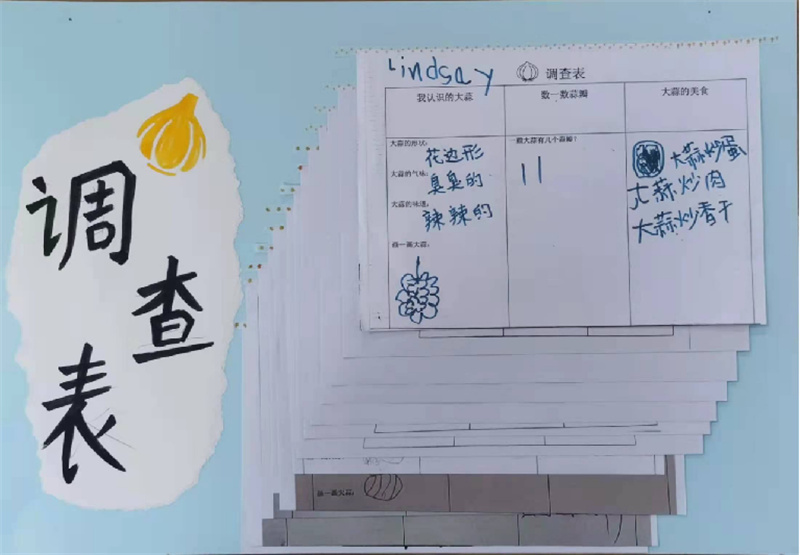 调
查
表
Lindsay
调查表
我认识的大蒜
数一数蒜瓣
大蒜的美食
大蒜的形状:
花边形
大蒜的气味:
臭臭的
大蒜的味道:
辣辣的
画一画大蒜:
一颗大蒜有几个蒜瓣?
11
大蒜炒蛋
大蒜炒肉
大蒜炒香干
画一画大蒜: